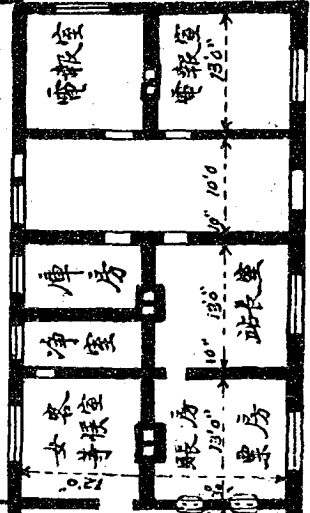 電報室
電報室
13'0"
10'0
10"
庫房
淨室
站長室
13'0"
10"
女客等候室
賬房
票房
13'0"